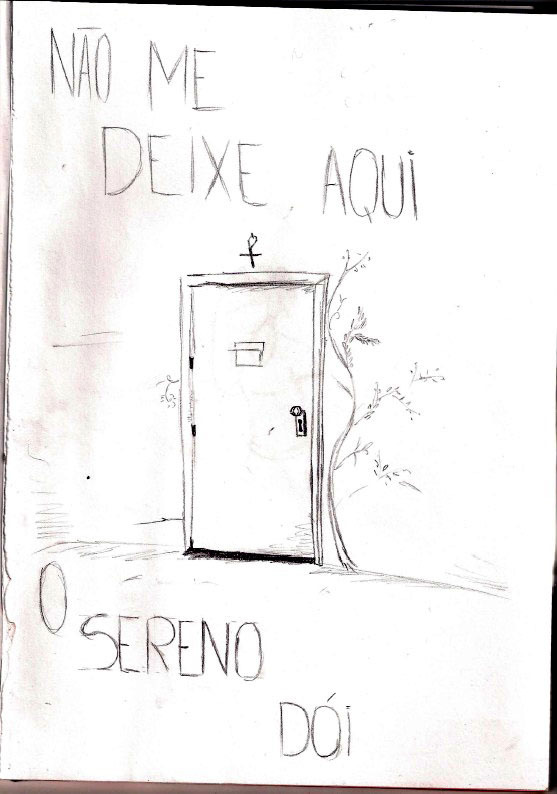 NÃO ME
DEIXE AQUI
O
SERENO
DÓI